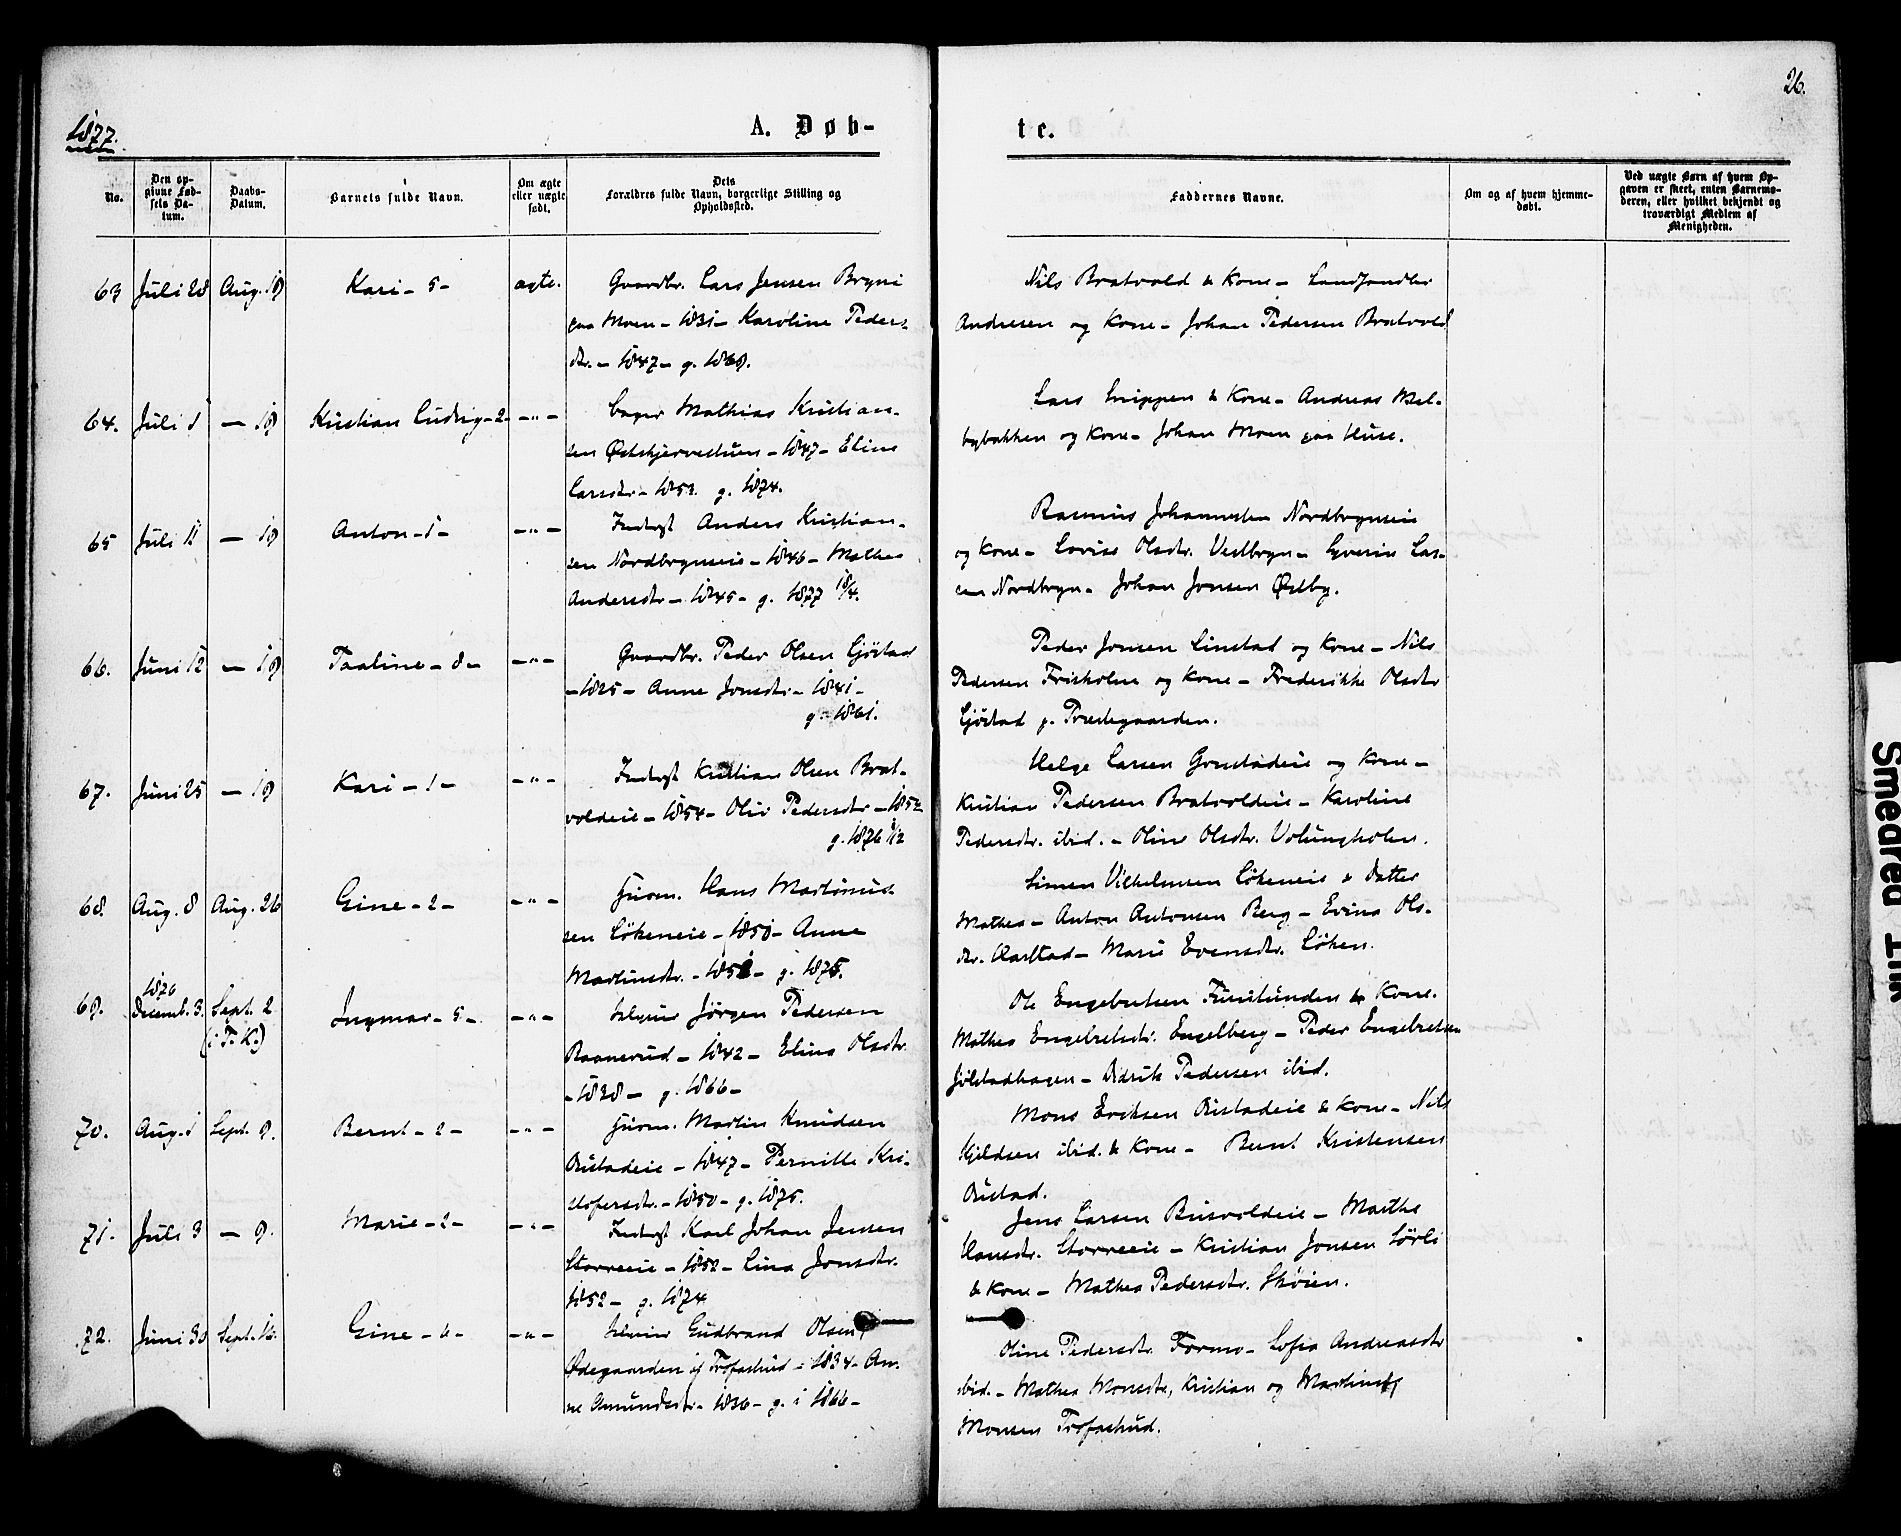 26.
1877.
A. Døb-
te.
No.
Den op-
givne Fød-
sels Da-
tum.
Daabs-
Datum.
Barnets fulde Navn.
Om ægte
eller uægte
født.
Dets
Forældres fulde Navn, borgerlige Stilling og
Opholdssted.
Faddernes Navne.
Om og af hvem hjemme-
døbt.
Ved uægte Børn af hvem Op-
gaven er skeet, enten Barnemo-
deren, eller hvilket bekjendt og
troværdigt Medlem af
Menigheden.
63 Juli 28 Aug. 19 Kari - 5 - ægte. Gaardbr. Lars Jensen Bryni
paa Moen - 1831 - Karoline Peders-
dtr. - 1847 - g. 1868.
Nils Bratvold & Kone - Landhandler
Andresen og Kone - Johan Pedersen Bratvold
64. Juli 1 - 19 Kristian Ludvig - 2 - - " - Mathias Kristian-
sen - 1847 - Eline
Larsdtr. - 1852. g. 1874.
Lars & Kone - Andreas Mel-
bybakken og Kone - Johan Moen paa Huse.
65 Juli 11 - 19 Anton - 1 - - " - Inderst Anders Kristian-
sen Nordbrynseie - 1846 - Mathea
Andersdtr - 1845 - g. 1877 18/4.
Rasmus Johannesen Nordbrynseie
og Kone - Lovise Olsdtr. Vestbryn - Syverin Lar-
sen Nordbryn - Johan Jonsen Østby.
66. Juni 12 - 19 Paaline - 8 - - " - Gaardbr. Peder Olsen Gjøstad
- 1825 - Anne Jonsdtr. - 1841 -
g. 1861.
Peder Jonsen Linstad og Kone - Nils
Pedersen Frisholm og Kone - Frederikke Olsdtr
Gjøstad p. Prestegaarden.
67. Juni 25 - 19 Kari - 1 - - " - Inderst Kristian Olsen Brat-
voldeie - 1854 - Oliv Pedersdtr - 1852
g. 1876
Helge Larsen og Kone -
Kristian Pedersen Bratvoldeie - Karoline
Pedersdtr. ibid. - Oline Olsdtr. Volungholen.
68. Aug. 8 Aug. 26 Gine - 2 - - " - Huusm. Hans Martinus-
sen Løkeneie - 1850 - Anne
Martinsdtr. - g. 1875.
Simen Vilhelmsen Løkeneie & Datter
Mathea - Anton Antonsen Berg - Evina Ols-
dtr. Aarstad - Marie Evensdtr. Løken.
69. 1876
Decemb. 3. Sept. 2
(i T. K.) Ingmar - 5 - - " - Selveier Jørgen Pedersen
Raanerud - 1842 - Elina Olsdtr.
- 1838 - g. 1866 -
Ole Engebretsen Furulunden & Kone.
Mathea Engebretsdtr. Engelberg - Peder Engebretsen
Jølstadhagen - Didrik Pedersen ibid.
70. Aug. 1 Sept. 9. Bernt - 2 - - " - Huusm. Martin Knudsen
Ristadeie - 1847 - Pernille Kri-
stofersdtr. - 1850 - g. 1875.
Mons Eriksen Ristadeie & Kone - Nils
Kjeldsen ibid. & Kone - Bernt Kristensen
Ristad.
71. Juli 3 - 9. Marie - 2 - - " - Inderst Karl Johan Jensen
Storreeie - 1852 - Lina Jonsdtr.
1852 - g. 1874
Jens Larsen - Marthe
Hansdtr. Storreeie - Kristian Jonsen Sørli
& Kone - Mathea Pedersdtr. Skøien.
72. Juni 30 Sept. 16. Gine - 6 - - " - Selveier Gudbrand Olsen
Ødegaarden - 1834 - An-
ne Amundsdtr - 1836 - g. i 1866 -
Oline Pedersdtr. Formo - Sofia Andreasdtr
ibid. - Mathea Monsdtr, Kristian og Martinus
Monsen Trofastrud.
Smeared Ink